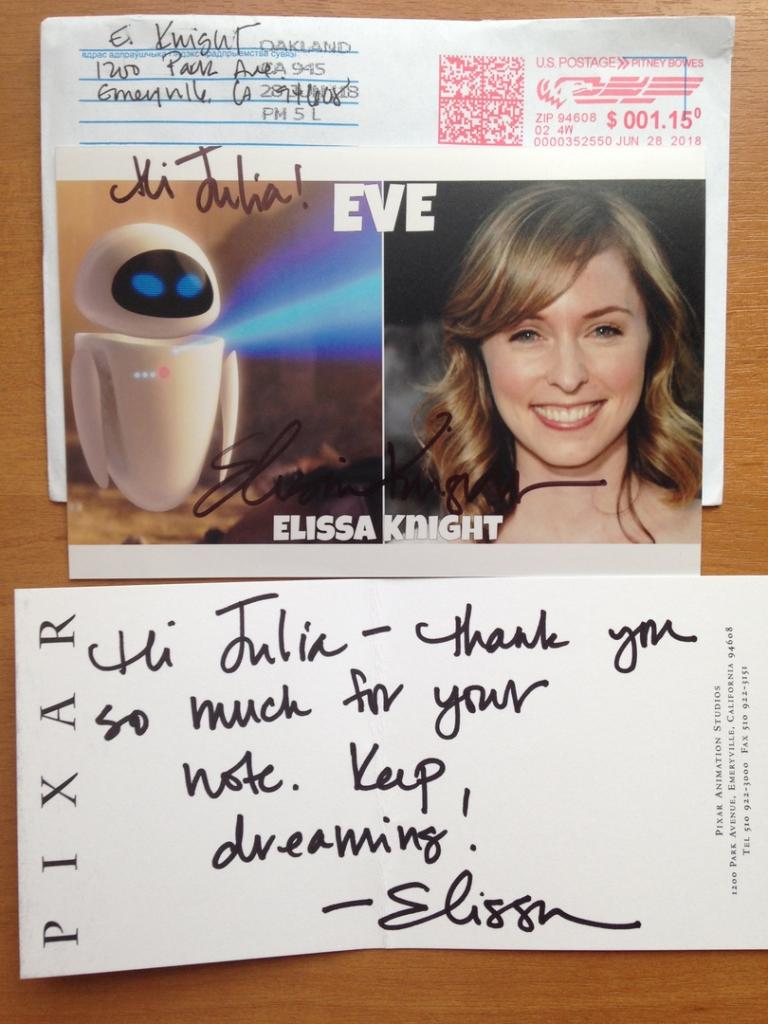 E. Knight
1200 Park Ave.
Emeryville, CA 94608
OAKLAND
CA 945
PM 5 L
U.S. POSTAGE >> PITNEY BOWES
ZIP 94608 $ 001.15⁰
02 4W
0000352550 JUN 28 2018
Hi Julia!
EVE
Elissa Knight
ELISSA KNIGHT
PIXAR
Hi Julia - thank you
so much for your
note. Keep
dreaming!
- Elissa
PIXAR ANIMATION STUDIOS
1200 PARK AVENUE, EMERYVILLE, CALIFORNIA 94608
TEL 510 922-3000 FAX 510 922-3151